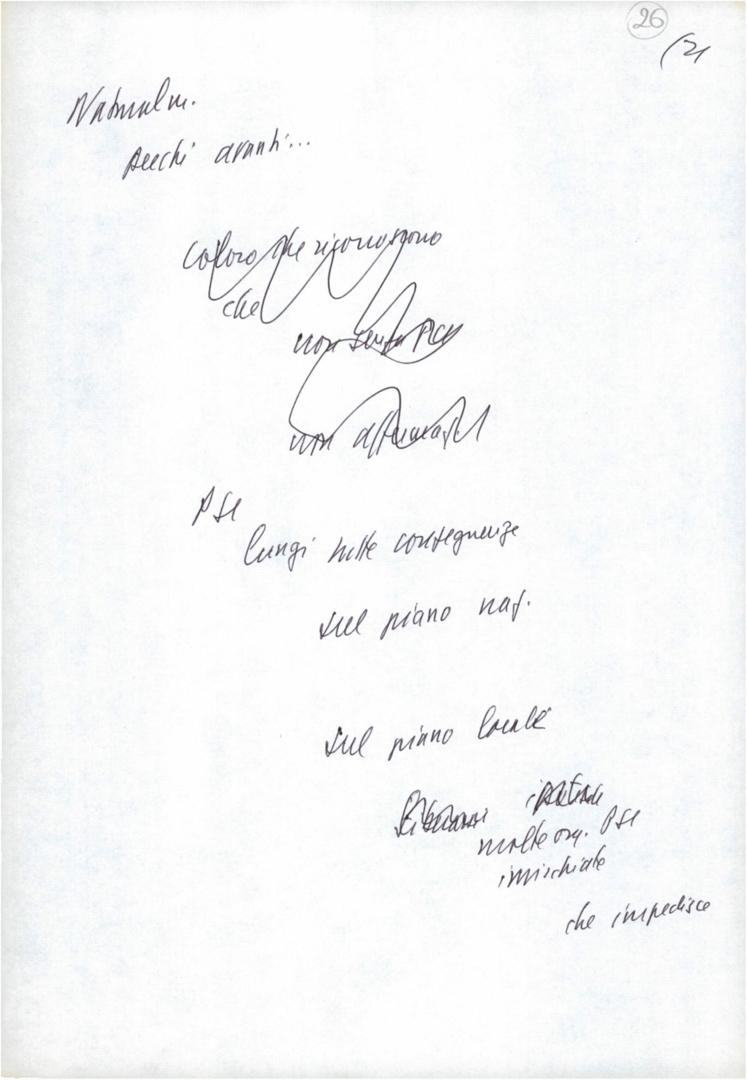 26
(21
Naturalm.
parecchi avanti...
coloro che riconoscono
che
non senza PCI
non
PSI
lungi tutte conseguenze
sul piano naz.
sul piano locale
molte org. PSI
immischiate
che impedisce